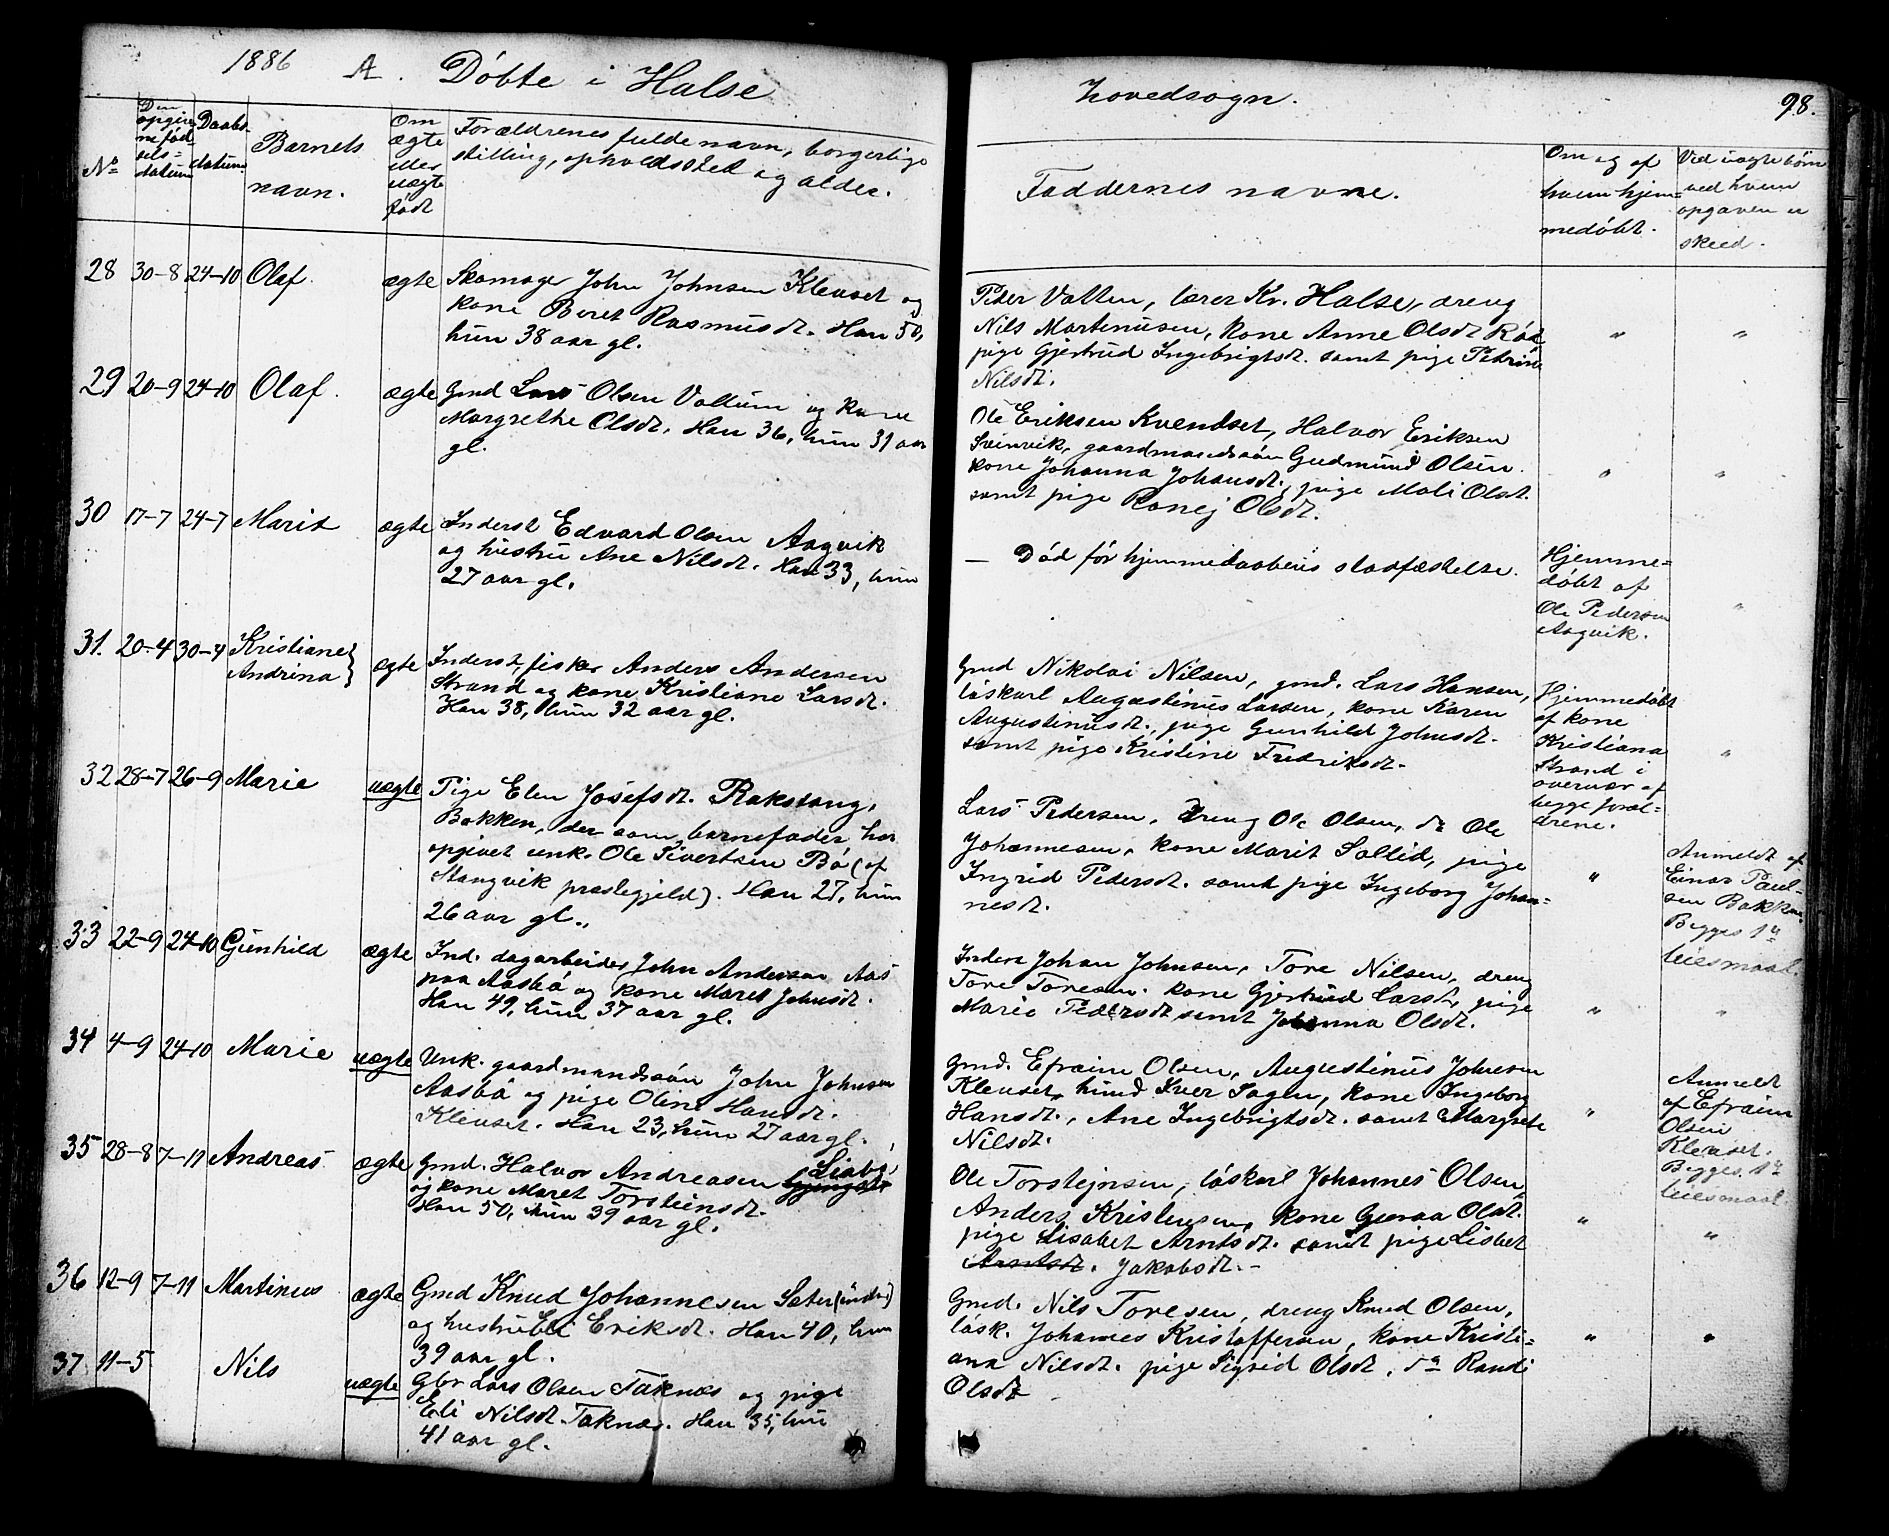 1886 A. Döbte i Halse
No
Den opgivne fødselsdatum
Daabsdatum
Barnets navn.
Om ægte eller uægte födt
Forældrenes fulde navn, borgerlige
stilling, opholdssted og alder.
28 30-8 24-10 Olaf. ægte Skomager John Johnsen Klevset og
kone Beret Rasmusdt. Han 50,
hun 38 aar gl.
29 20-9 24-10 Olaf. ægte Gmd Lars Olsen Valtum og kone
Margrethe Olsdt. Han 36, hun 31 aar
gl.
30 17-7 24-7 Marit ægte Inderst Edvard Olsen Aagvik
og hustru Ane Nilsdt. Han 33, hun
27 aar gl.
31. 20-4 30-4 Kristiane
Andrina ægte Inderst, fisker Anders Andersen
Strand og kone Kristiane Larsdt.
Han 38, hun 32 aar gl.
32 28-7 26-9 Marie uægte Pige Elen Josefsdt. Rakstang,
Bakken, der som barnefader har
opgivet unk. Ole Sivertsen Bö (af
Stangvik præstegjeld). Han 27, hun
26 aar gl.
33 22-9 24-10 Gunhild ægte Ind. dagarbeider John Andersen Aas
paa Aasbö og kone Maret Johnsdt.
Han 49, hun 37 aar gl.
34 4-9 24-10 Marie uægte Unk. gaardmandssön John Johnsen
Aasbö og pige Oline Hansdt.
Klevset. Han 23, hun 27 aar gl.
35 28-8 7-11 Andreas ægte Gmd. Halvor Andreasen Liabö
og kone Maret Torsteinsdt.
Han 50, hun 39 aar gl.
36 12-9 7-11 Martinus ægte Gmd Knud Johannesen Sæter (indre)
og hustru Eli Eriksdt. Han 40, hun
39 aar gl.
37 11-5 Nils uægte Gbr Lars Olsen Taknæs og pige
Eli Nilsdt. Taknæs. Han 35, hun
41 aar gl.
hovedsogn. 98.
Faddernes navne.
Om og af
hvem hjem=
medöbt.
Ved uægte börn
ved hvem
opgaven er
skeed.
Peder Vatten, lærer Kr. Halse, dreng
Nils Martinusen, kone Anne Olsdt Röd,
pige Gjertrud Ingebrigtsdt. samt pige Petrine
Nilsdt. " "
Ole Eriksen Kvendset, Halvor Eriksen
Svinvik, gaardmandssön Gudmund Olsen.
kone Johanna Johansdt, pige Mali Olsdt.
samt pige Ronej Olsdt. " "
— Död för hjemmedaabens stadfæstelse.
Hjemme=
döbt af
Ole Pedersen
Aagvik. "
Gmd Nikolai Nilsen, gmd. Lars Hansen,
löskarl Augustinus Larsen, kone Karen
Augustinusdt., pige Gunhild Johnsdt.
samt pige Kristine Fredriksdt.
Hjemmedöbt
af kone
Kristiana
Strand i
overvær af
begge foræl=
drene. "
Lars Pedersen, dreng Ole Olsen, do Ole
Johannesen, kone Marit Sollid, pige
Ingrid Pedersdt. samt pige Ingeborg Johan=
nesdt. "
Anmeldt af
Einar Paul=
sen Bakken.
Begges 1ste
leiesmaal.
Inderst Johan Johnsen, Tore Nilsen, dreng
Tore Toresen, kone Gjertrud Larsdt, pige
Marie Pedersdt samt Johanna Olsdt. " "
Gmd. Efraim Olsen, Augustinus Johnsen
Klevset, hmd Iver Sagen, kone Ingeborg
Hansdt., Ane Ingebrigtsdt. samt Margrete
Nilsdt. "
Anmeldt
af Efraim
Olsen
Klevset.
Begges 1ste
leiesmaal
Ole Torstejnsen, löskarl Johannes Olsen,
Anders Kristensen, kone Guroa Olsdt.
pige Lisabet Arntsdt. samt pige Lisbet
Arntsdt. Jakobsdt. — " "
Gmd. Nils Toresen, dreng Knud Olsen,
lösk. Johannes Kristoffersen, kone Kristi=
ana Nilsdt. pige Sigrid Olsdt, do Randi
Olsdt " "